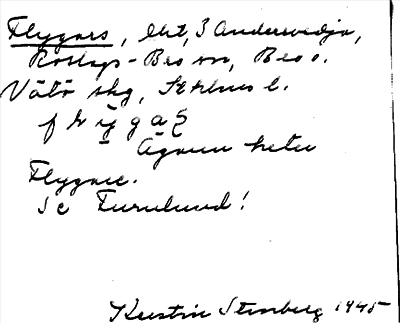 Flygars, lht, 3 Andersvedja,
Roslags-Bro sn, Bro o.
Vätö skg, Sthlms l.
Ägaren heter
Flygare.
Se Furulund!
Kerstin Stenberg 1945